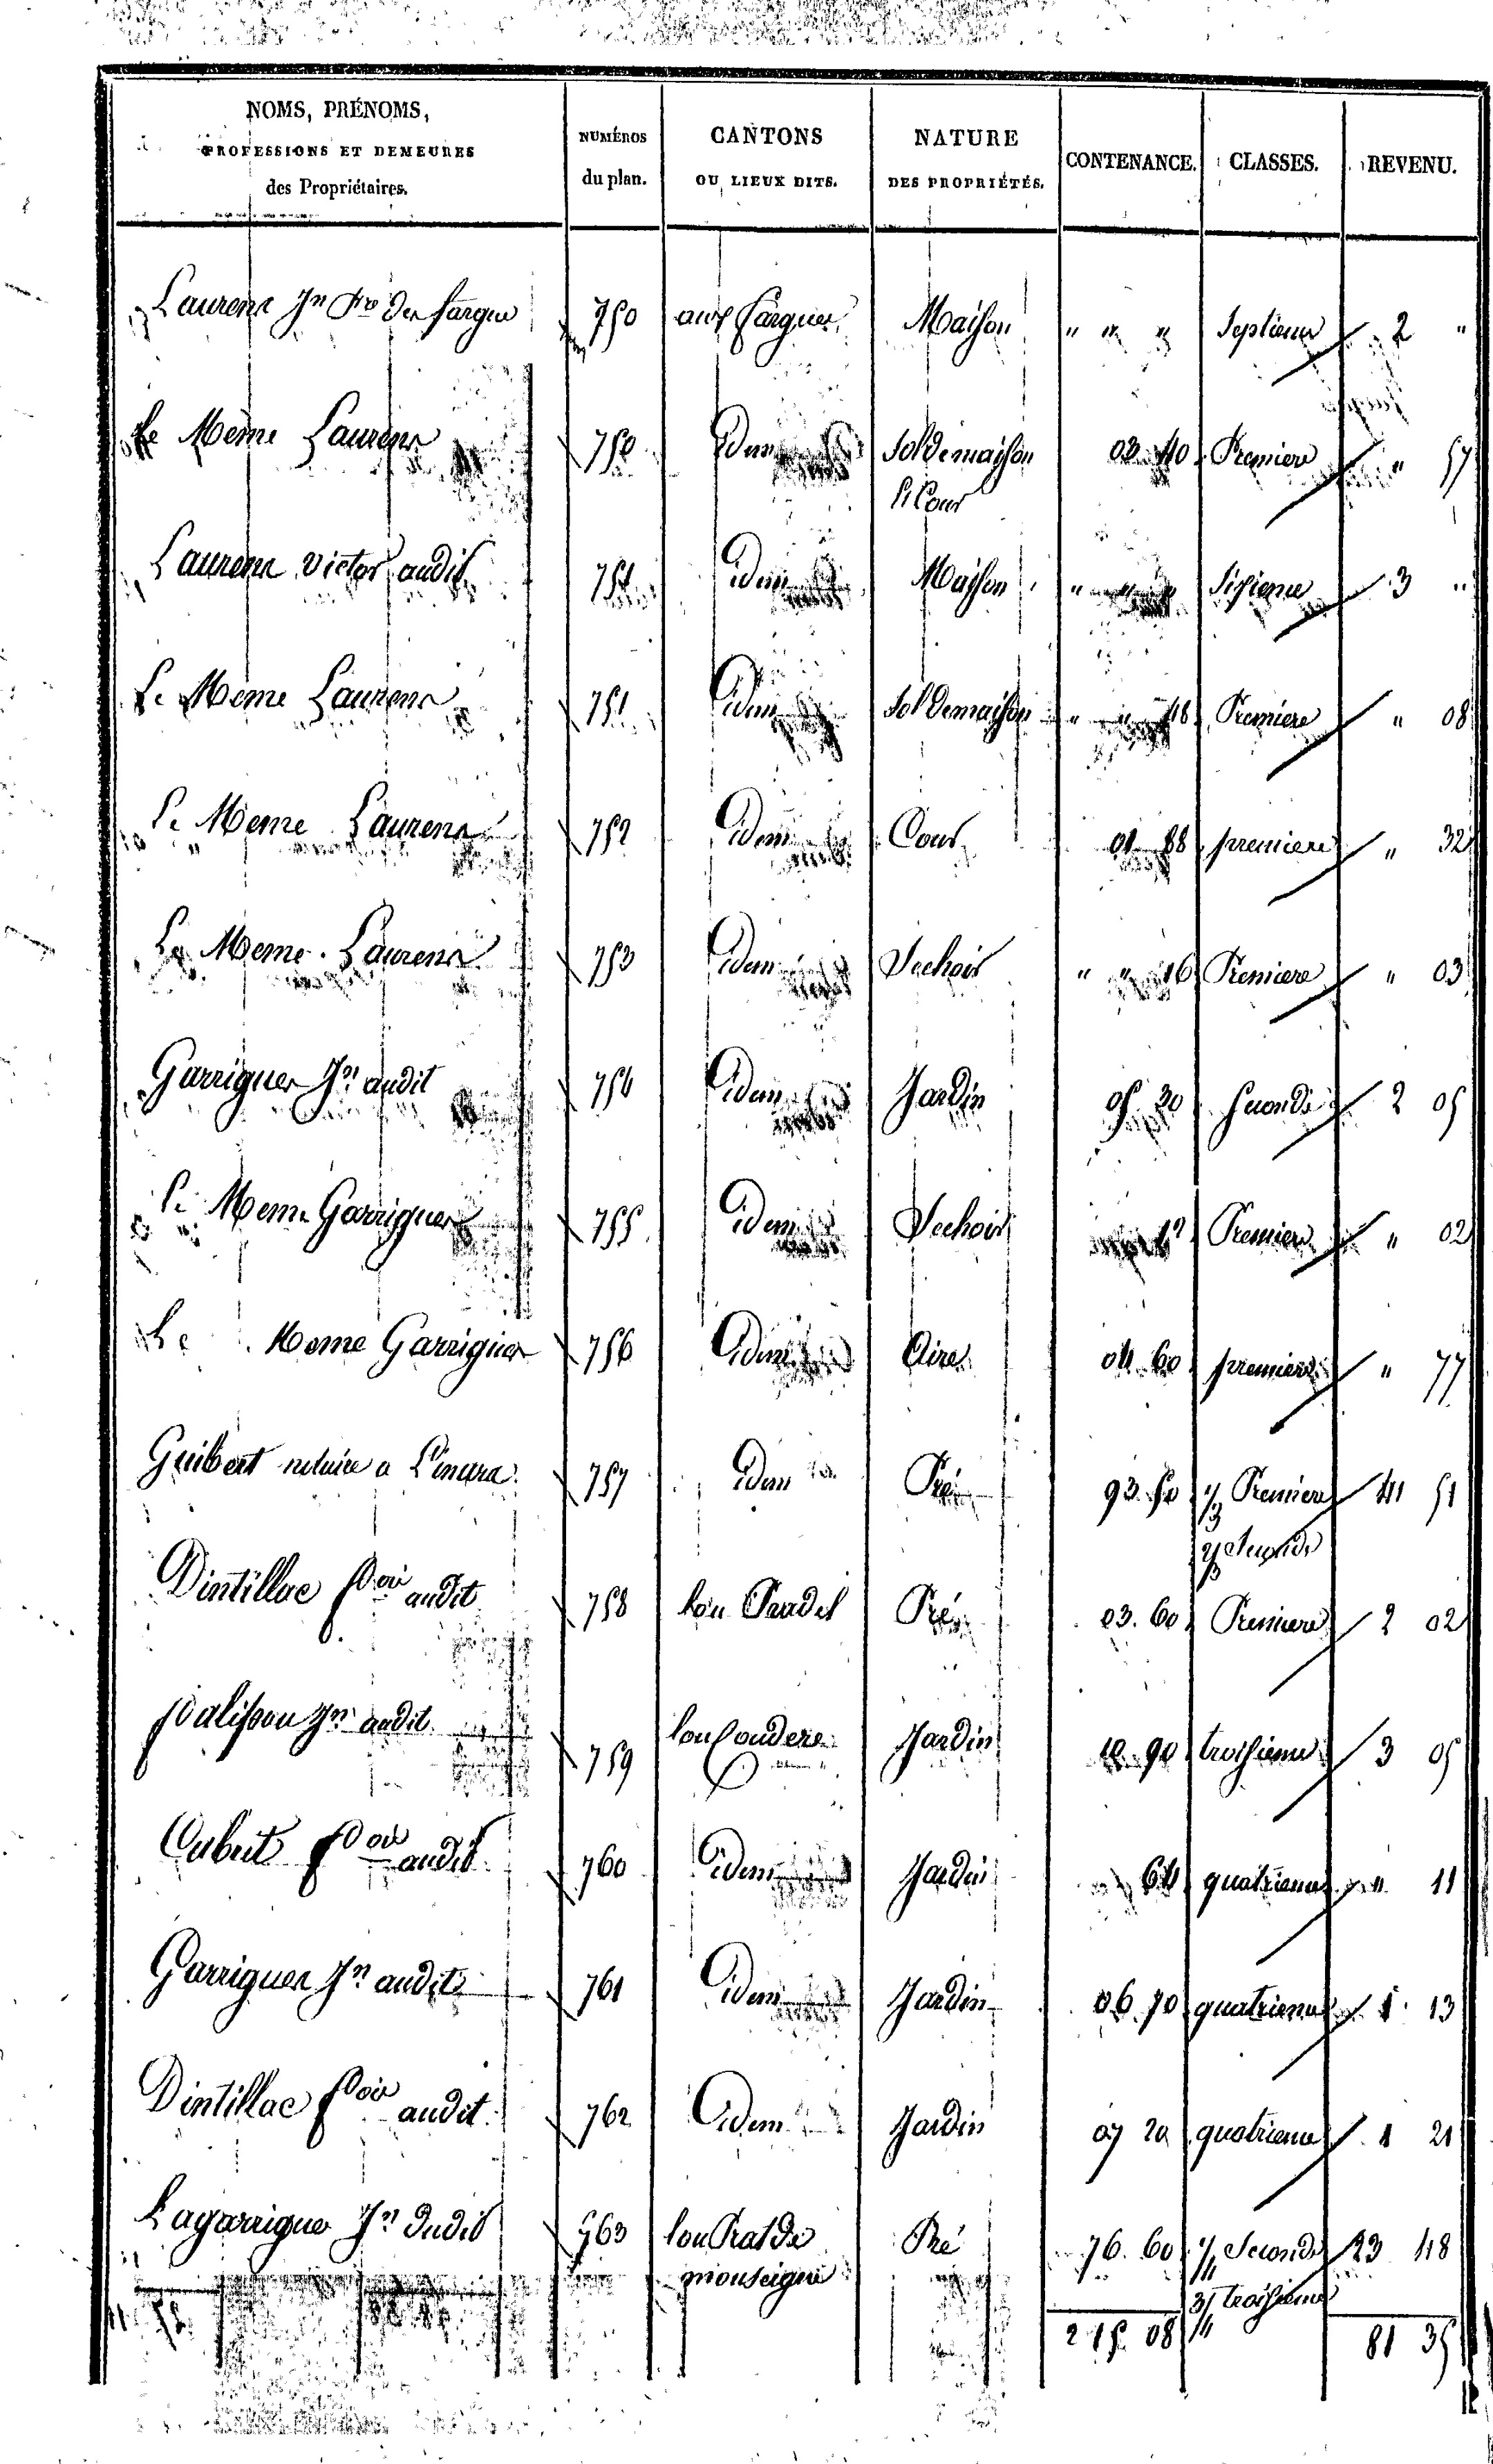 NOMS, PRÉNOMS, PROFESSIONS ET DEMEURES des Propriétaires. NUMÉROS du plan. CANTONS OU LIEUX DITS. NATURE DES PROPRIÉTÉS. CONTENANCE. CLASSES. REVENU.
Laurens Jn 750 aux fargues Maison " " " septieme 2 "
Le Même Laurens 750 Idem Sol de maison 03 40 Premiere " 57
et Cour
Laurens victor audit 751 idem Maison " " " sixieme 3 "
Le Meme Laurens 751 idem Sol de maison " " 48 Premiere " 08
Le Meme Laurens 752 idem Cour 01 88 premiere " 32
Le Meme Laurens 753 idem Sechoir " " 16 Premiere " 03
Garrigues Jn audit 754 idem Jardin 05 30 seconde 2 05
Le Meme Garrigues 755 idem Sechoir 12 Premiere " 02
Le Meme Garrigues 756 idem Aire 04 60 premiere " 77
Guibert notaire a 757 idem Pré 93 50 1/3 Premiere 41 51
2/3 seconde
Dintillac audit 758 lou Pradel Pré 03. 60 Premiere 2 02
audit 759 lou Couderc Jardin 10 90 troisieme 3 05
audit 760 idem Jardin 64 quatrieme " 11
Garrigues Jn audit 761 idem Jardin 06 70 quatrieme 1 13
Dintillac audit 762 idem Jardin 07 20 quatrieme 1 21
Lagarrigue Jn dudit 763 lou Prat de Pré 76. 60 1/4 Seconde 23 48
mouseigne 3/4 troisieme
215 08 81 35